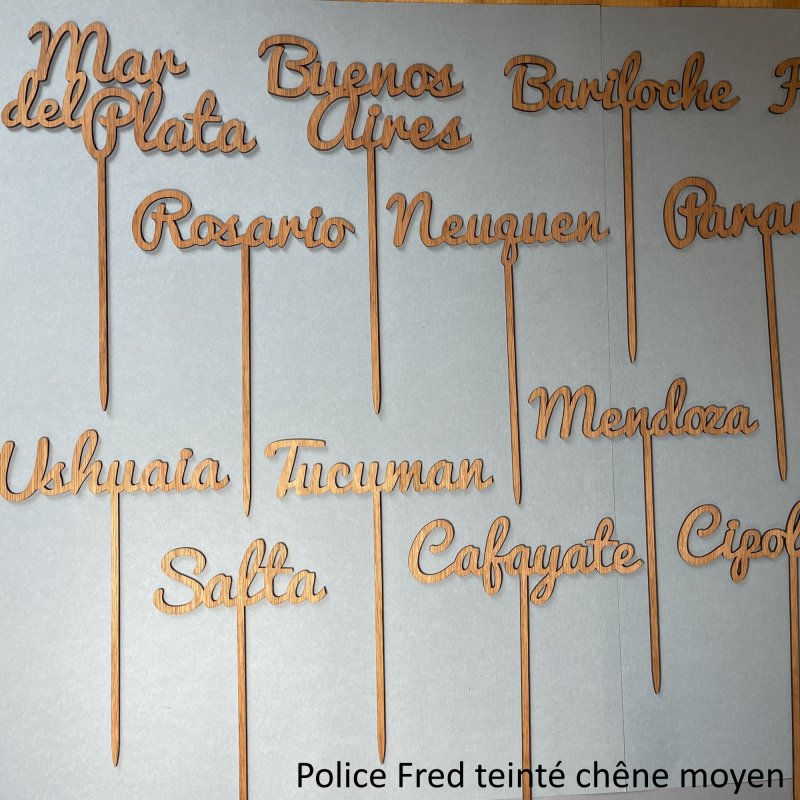 Mar
del Plata
Buenos
Aires
Bariloche
F
Rosario
Neuquen
Paran
Mendoza
Ushuaia
Tucuman
Cafayate
Cipol
Salta
Police Fred teinté chêne moyen